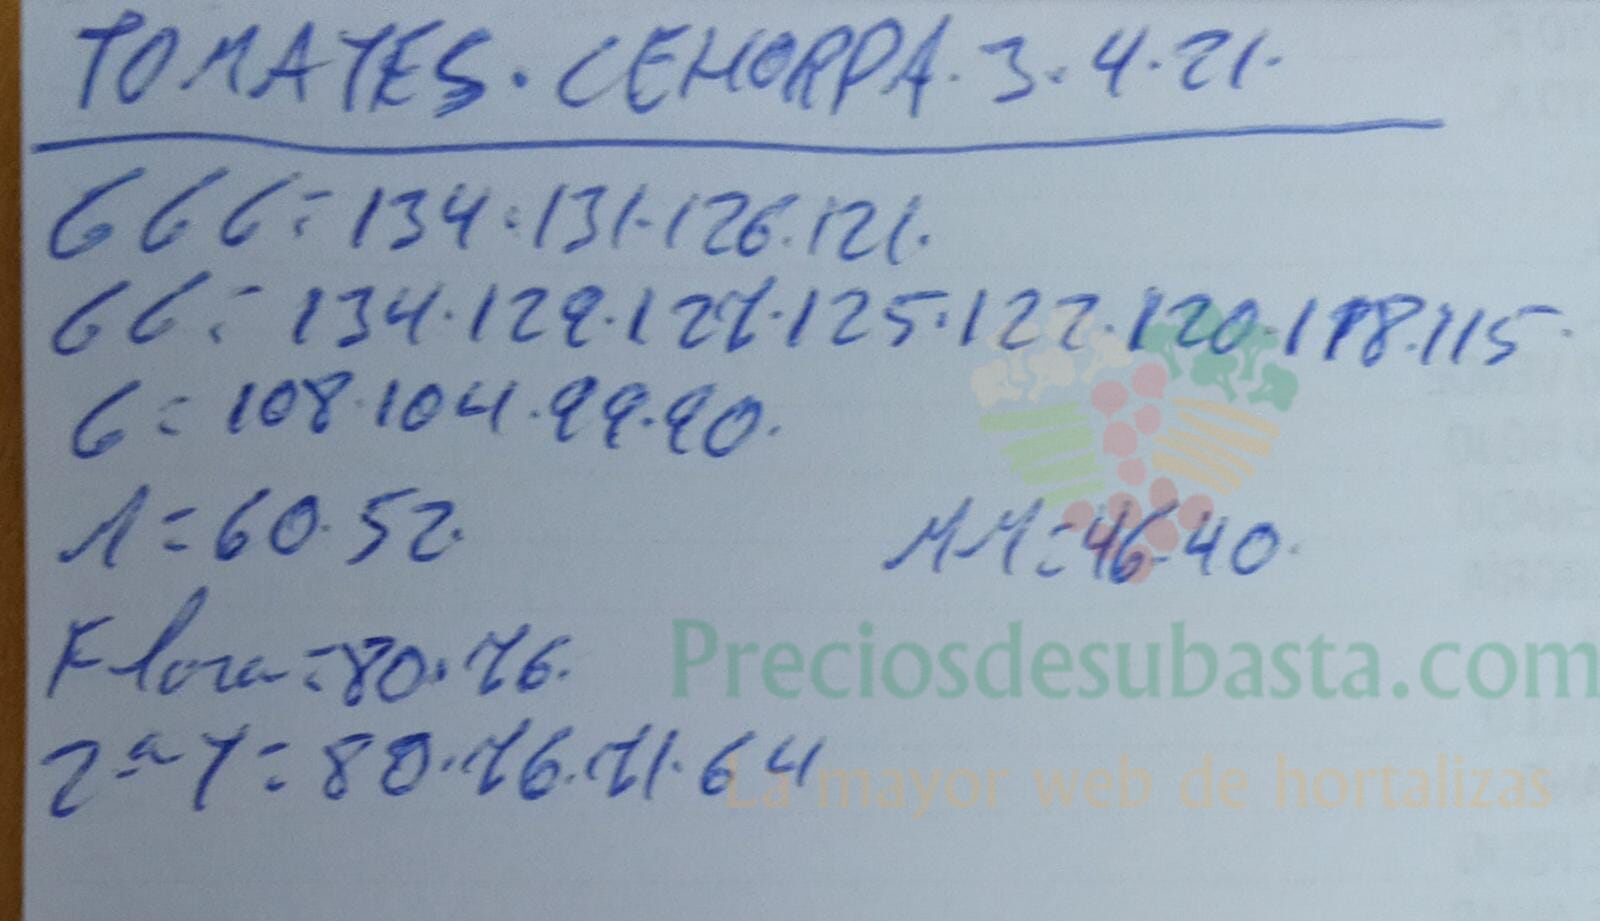 TOMATES. CEHORPA. 3. 4. 21.
GGG = 134. 131. 126. 121.
GG = 134. 129. 127. 125. 122. 120. 118. 115.
G = 108. 104. 99. 90.
M = 60. 52. MM = 46. 40.
Flora = 80. 76.
2ª T = 80. 76. 71. 64
Preciosdesubasta.com
La mayor web de hortalizas